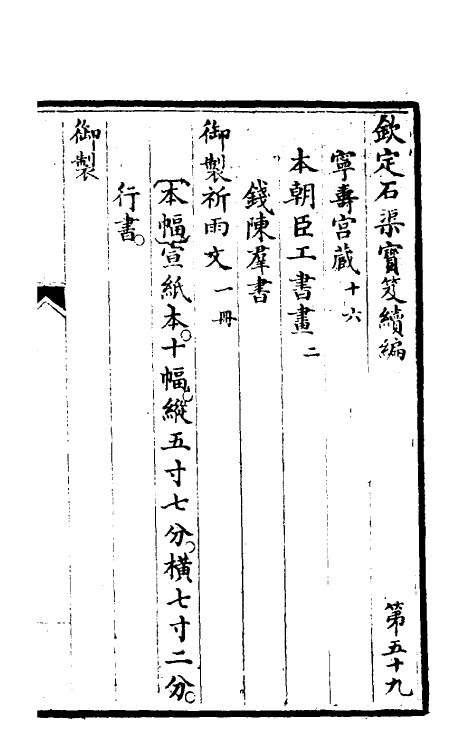 欽定石渠寶笈續編 第五十九
寧壽宮藏十六
本朝臣工書畫二
錢陳羣書
御製祈雨文一冊
〔本幅〕宣紙本。十幅、縱五寸七分。橫七寸二分。
行書。
御製